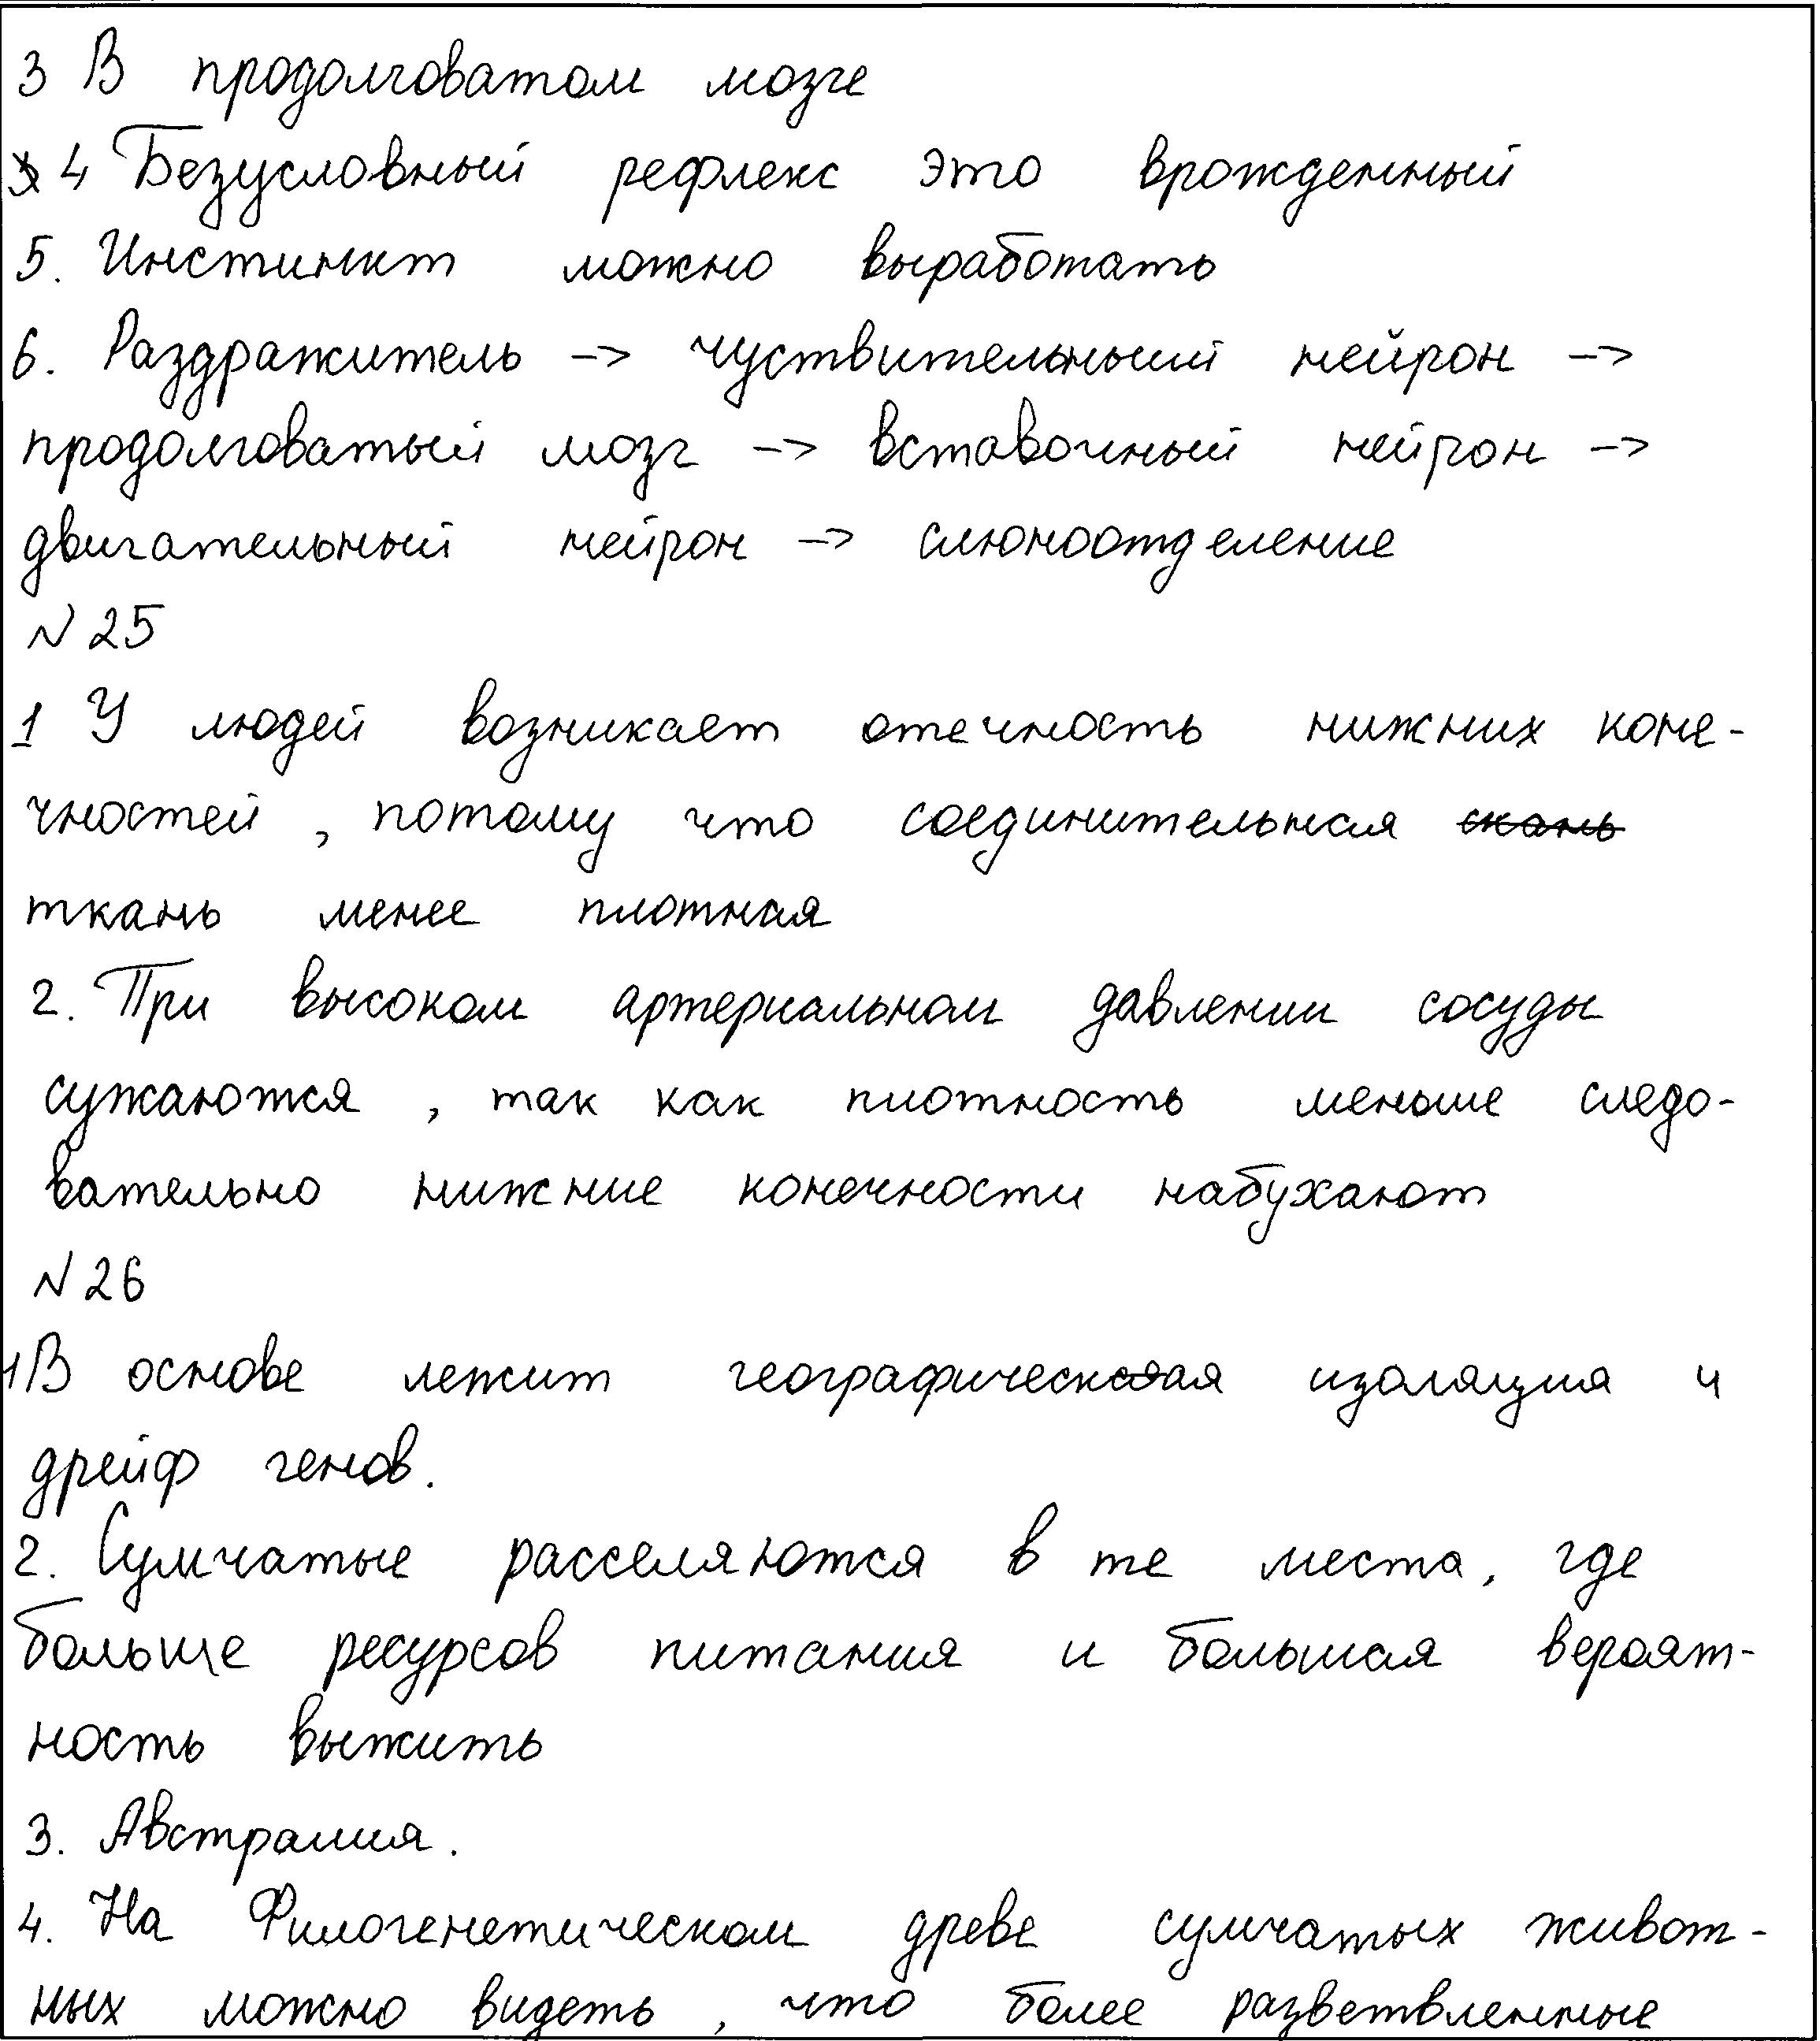 3 В продолговатом мозге
4 Безусловный рефлекс это врожденный
5. Инстинкт можно выработать
6. Раздражитель -> чуствительный нейрон ->
продолговатый мозг -> вставочный нейрон ->
двигательный нейрон -> слюноотделение
№25
1 У людей возникает отечность нижних коне-
чностей, потому что соединительная скань
ткань менее плотная
2. При высоком артериальном давлении сосуды
сужаются, так как плотность меньше следо-
вательно нижние конечности набухают
№26
1 В основе лежит географическая изоляция и
дрейф генов.
2. Сумчатые расселяются в те места, где
больше ресурсов питания и большая вероят-
ность выжить
3. Австралия.
4. На Филогенетическом древе сумчатых живот-
ных можно видеть, что более разветвленные